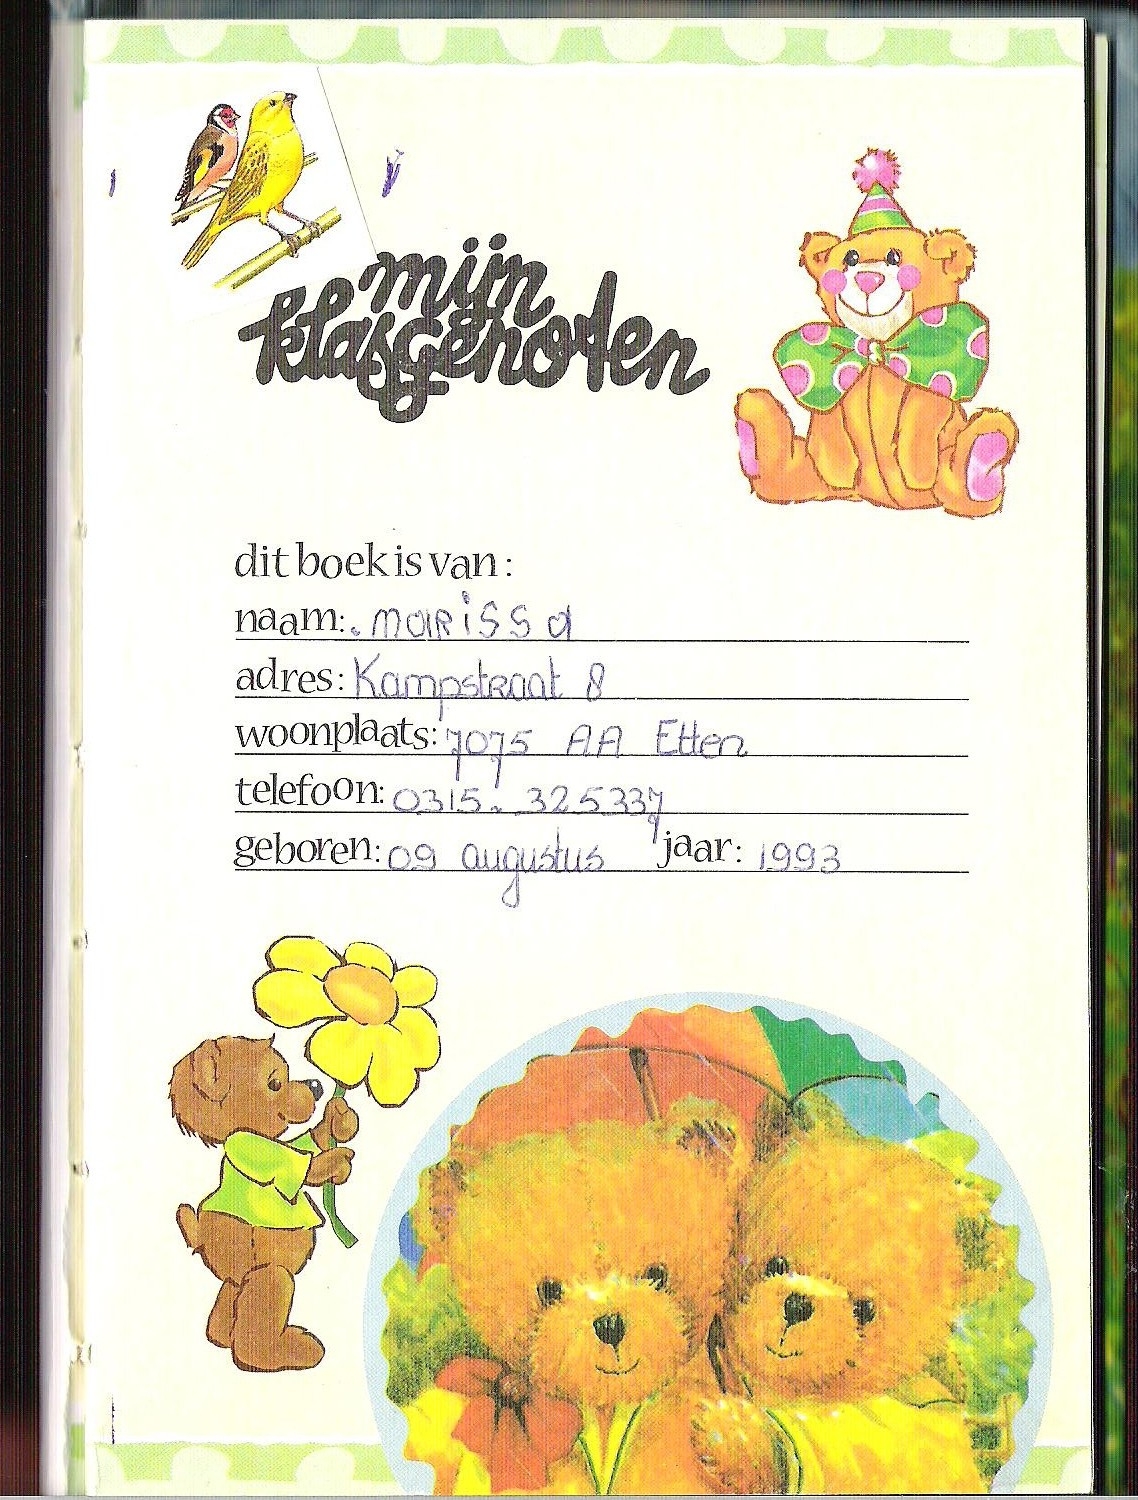 mijn
klasgenoten
dit boek is van:
naam: marissa
adres: Kampstraat 8
woonplaats: 7075 AA Etten
telefoon: 0315. 325337
geboren: 09 augustus jaar: 1993